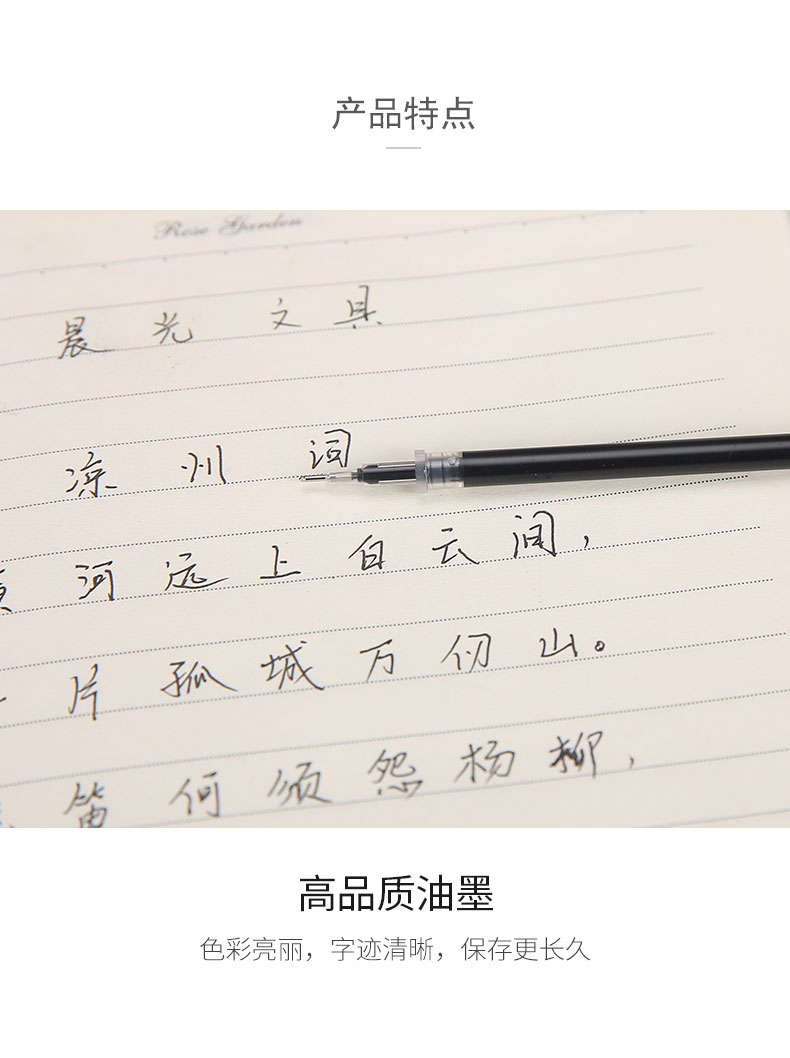 产品特点
Rose Garden
晨光文具
凉州词
黄河远上白云间，
片孤城万仞山。
笛何须怨杨柳，
高品质油墨
色彩亮丽，字迹清晰，保存更长久